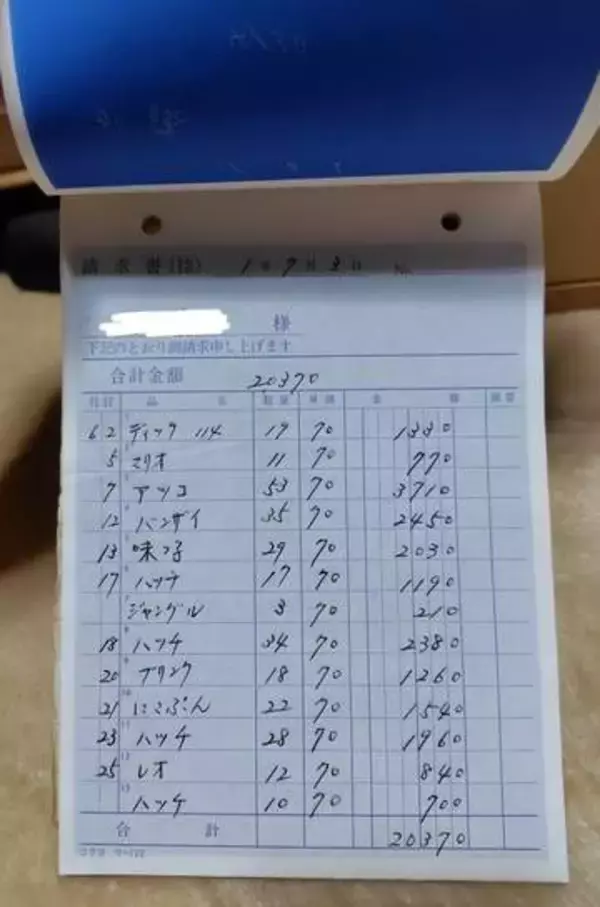 請求書(控) 1年7月3日 No.
様
下記のとおり御請求申し上げます
合計金額 20370
月日 品名 数量 単価 金額 摘要
6 2 ディック 114 19 70 1330
5 マリオ 11 70 770
7 アツコ 53 70 3710
12 バンザイ 35 70 2450
13 味っ子 29 70 2030
17 ハッチ 17 70 1190
ジャングル 3 70 210
18 ハッチ 34 70 2380
20 18 70 1260
21 にこぷん 22 70 1540
23 ハッチ 28 70 1960
25 レオ 12 70 840
ハッチ 10 70 700
合計 20370